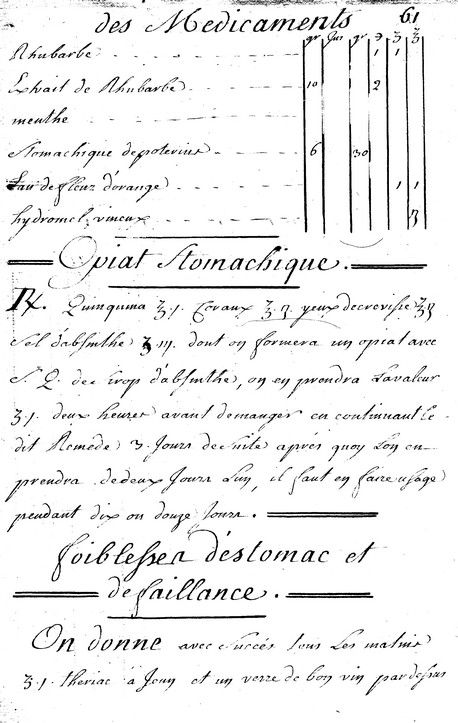 des Medicaments 61
gr Jus gr ℈ ʒ ℥
Rhubarbe 1 1
Extrait de Rhubarbe 10 2
menthe
Stomachique depoterius 6 30
Eau de fleur d'orange 1 1
hydromel vineux
Opiat Stomachique.
℞. Quinquina ℥.1. Coraux yeux decrevisse
Sel d'absinthe ʒ.III. dont on formera un opiat avec
S. Q. de sirop d'absinthe, on en prendra Lavaleur
ʒ.1. deux heures avant demanger en continuant le
dit Remede 3 Jours desuite aprés quoy Lon en
prendra dedeux Jours Lun, il faut en faire usage
pendant dix ou douze Jours.
foiblesses d'estomac et
defaillance.
On donne avec succés tous Les matins
ʒ.1. theriac a Jeun et un verre de bon vin pardessus